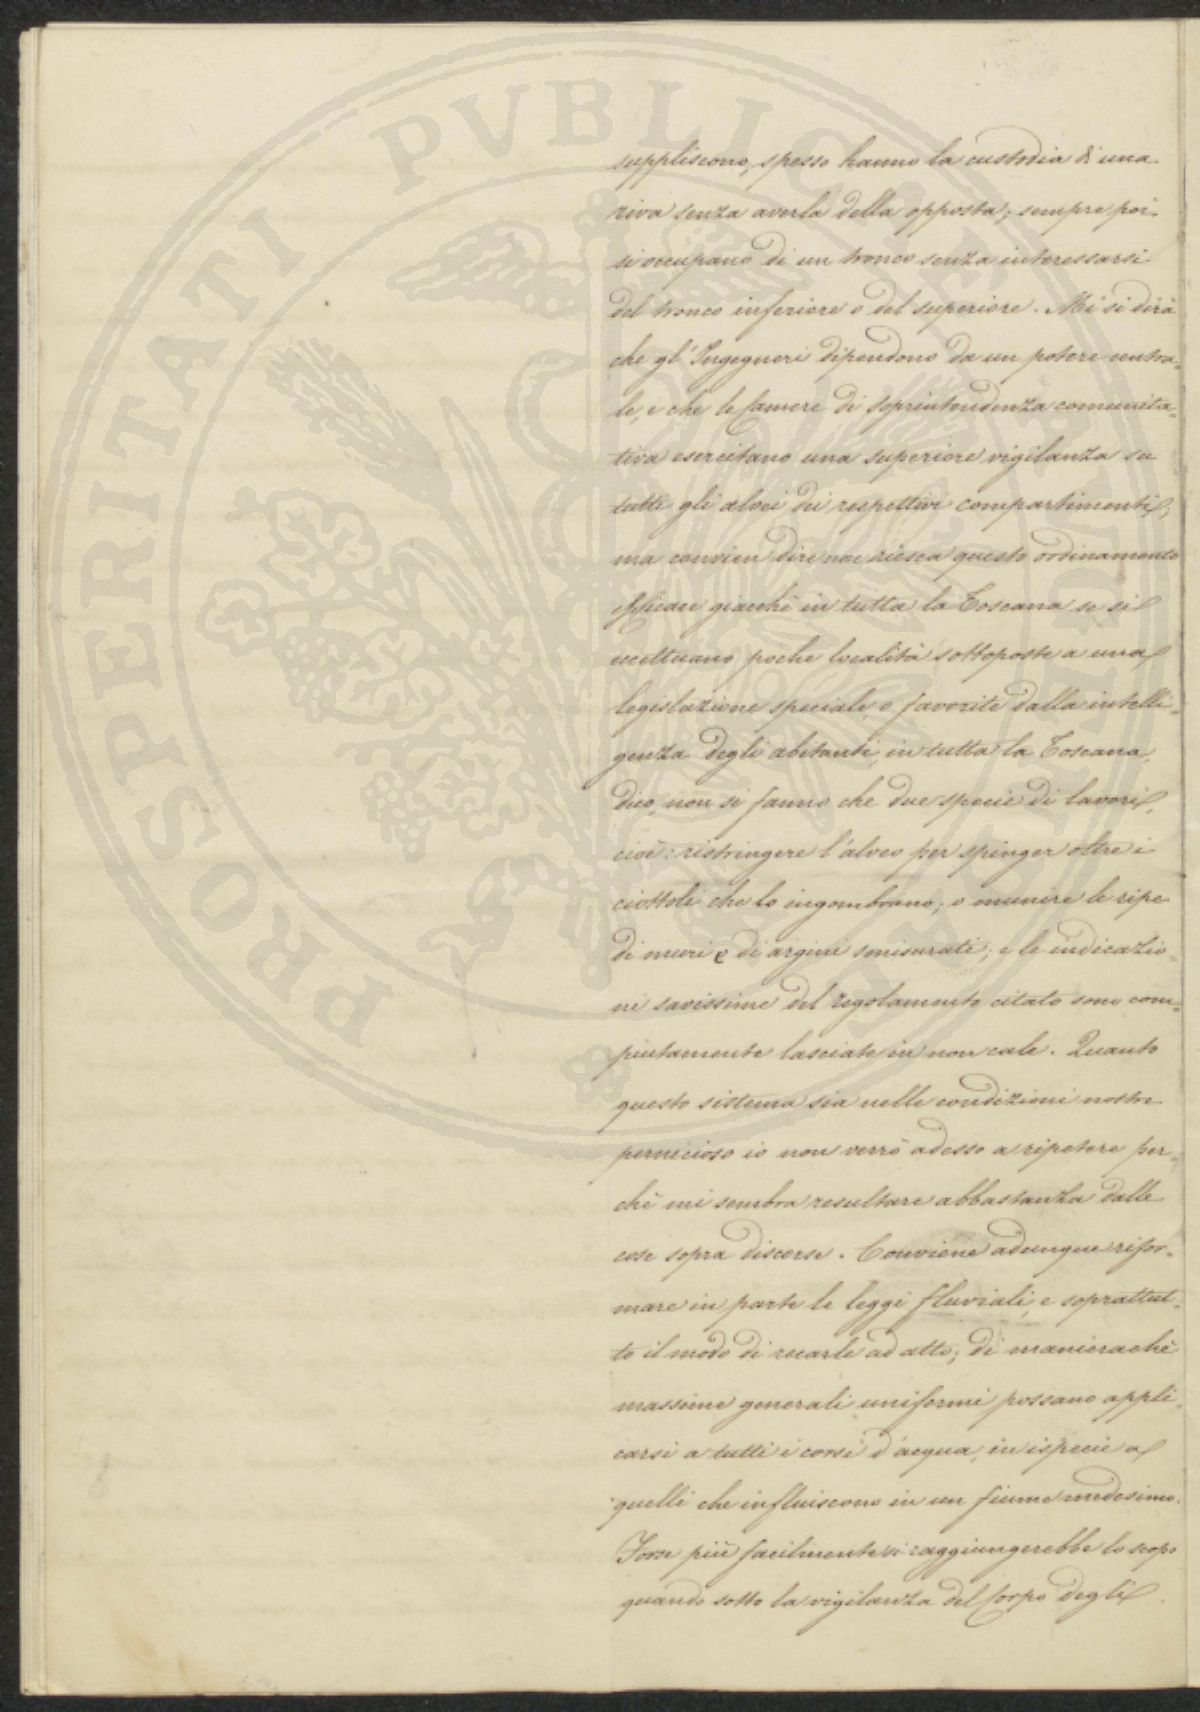 suppliscono, spesso hanno la custodia di una
riva senza averla della opposta; sempre poi
si occupano di un tronco senza interessarsi
del tronco inferiore o del superiore. Mi si dirà
che gl'Ingegneri dipendono da un potere centra=
le, e che le Camere di soprintendenza comunita=
tiva esercitano una superiore vigilanza su
tutti gli alvei dei respettivi compartimenti;
ma convien dire non riesca questo ordinamento
efficace giacchè in tutta la Toscana se si
eccettuano poche località sottoposte a una
legislazione speciale, o favorite dalla intelli=
genza degli abitanti, in tutta la Toscana,
dico, non si fanno che due specie di lavori,
cioè: ristringere l'alveo per spinger oltre i
ciottoli che lo ingombrano; o munire le ripe
di muri e di argini smisurati; e le indicazio=
ni savissime del regolamento citato sono com=
piutamente lasciate in non cale. Quanto
questo sistema sia nelle condizioni nostre
pernicioso io non verrò adesso a ripetere per=
chè mi sembra resultare abbastanza dalle
cose sopra discorse. Conviene adunque rifor=
mare in parte le leggi fluviali, e soprattut=
to il modo di recarle ad atto; di manierachè
massime generali uniformi possano appli=
carsi a tutti i corsi d'acqua, in ispecie a
quelli che influiscono in un fiume medesimo.
Forse più facilmente si raggiungerebbe lo scopo
quando sotto la vigilanza del Corpo degli
PROSPERITATI PVBLICAE